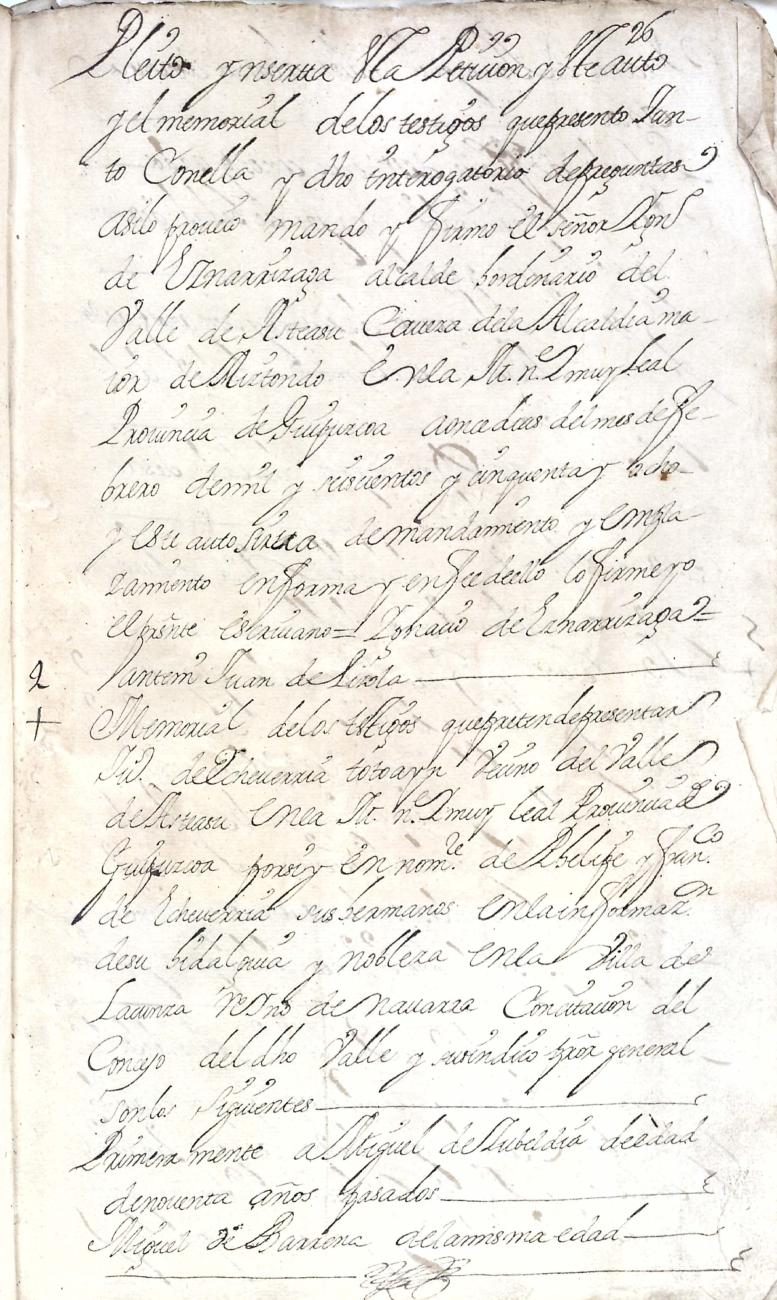 26
Pleito ynserta esta Peticion y este auto
y el memorial delos testigos que presento Jun-
to Conella y dho Interogatorio depreguntas
asilo proveio mando y firmo el señor Ygno
de Eznarrizaga alcalde hordinario del
Valle de Asteasu Caveza dela Alcaldia ma-
ior de Aiztondo Enla M. n. E muy Leal
Provincia de Guipuzcoa aoncedias delmes defe-
brero demil y seiscientos y cinquenta y ocho
y este auto sirva demandamiento y empla
zamiento enforma y enfee deello lo firme yo
el pressnte escrivano= Ygnacio de Eznarrizaga=
2 Pantem Juan de Lizola
+ Memorial delos testigos quepretendepresentar
Ju. de Echeverria totoayn Vecino del Valle
de Asteasu Enla M. n. E muy leal Provincia de
Guipuzcoa porsiy En nom.e de Phelipe y fran.co
de Echeverria sus hermanos Enlainformaz.on
desu hidalguia y nobleza Enla Villa de
Lacunza Reyno de navarra Concitacion del
Concejo del dho Valle y susindico pror general
sonlos siguientes
Primera mente a Miguel de Zubeldia deedad
denoventa años pasados
Miguel de Barrena delamisma edad